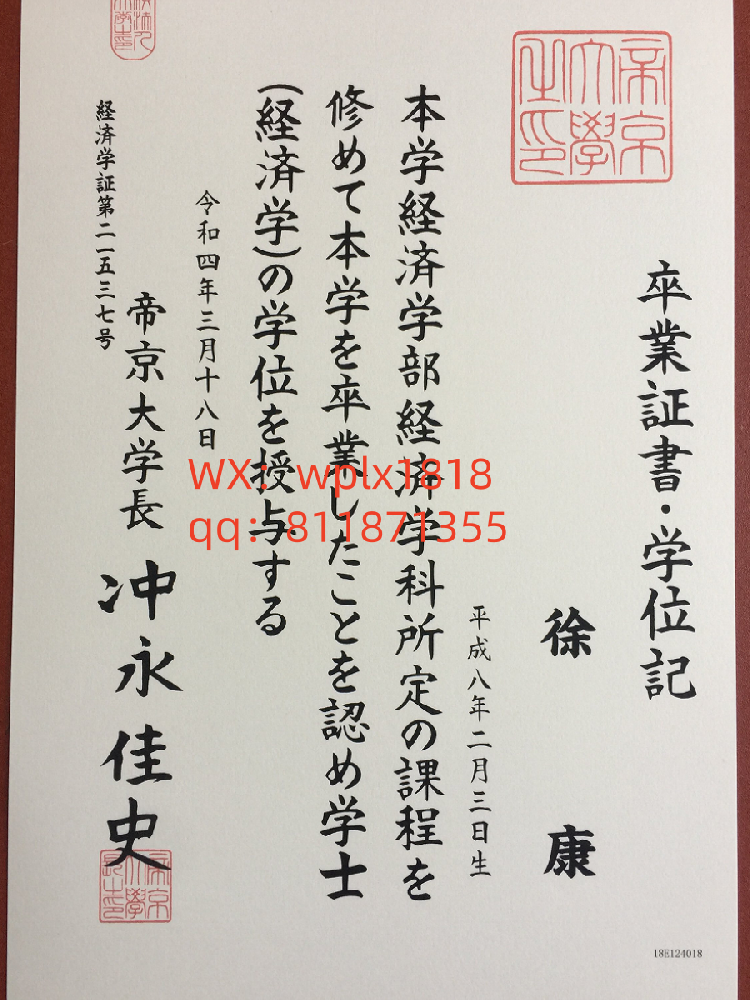 卒業証書・学位記
徐 康
平成八年二月三日生
本学経済学部経済学科所定の課程を
修めて本学を卒業したことを認め学士
(経済学)の学位を授与する
令和四年三月十八日
帝京大学長 冲永佳史
経済学証第二一五三七号
帝京大學之印
WX：wplx1818
qq：811871355
18E124018